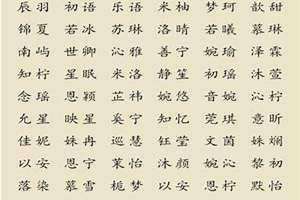 辰羽 初语 乐语 米柚 梦珂 歆甜
锦夏 若冰 苏琳 洛晴 若曦 慕琳
南屿 世卿 沁雅 善宁 婉瑜 泽霖
知柠 星眠 米洛 静笙 初瑶 沐萱
念瑶 恩颖 芷祎 婉悠 音婉 思柠
允星 映星 奚宁 知忆 莞琪 意昕
佳妮 姝冉 巡慧 钰莹 文茵 姝娴
以安 恩宁 茉怡 沐颜 婉沁 黎初
落染 慕雪 栀梦 以安 恩柠 默怡